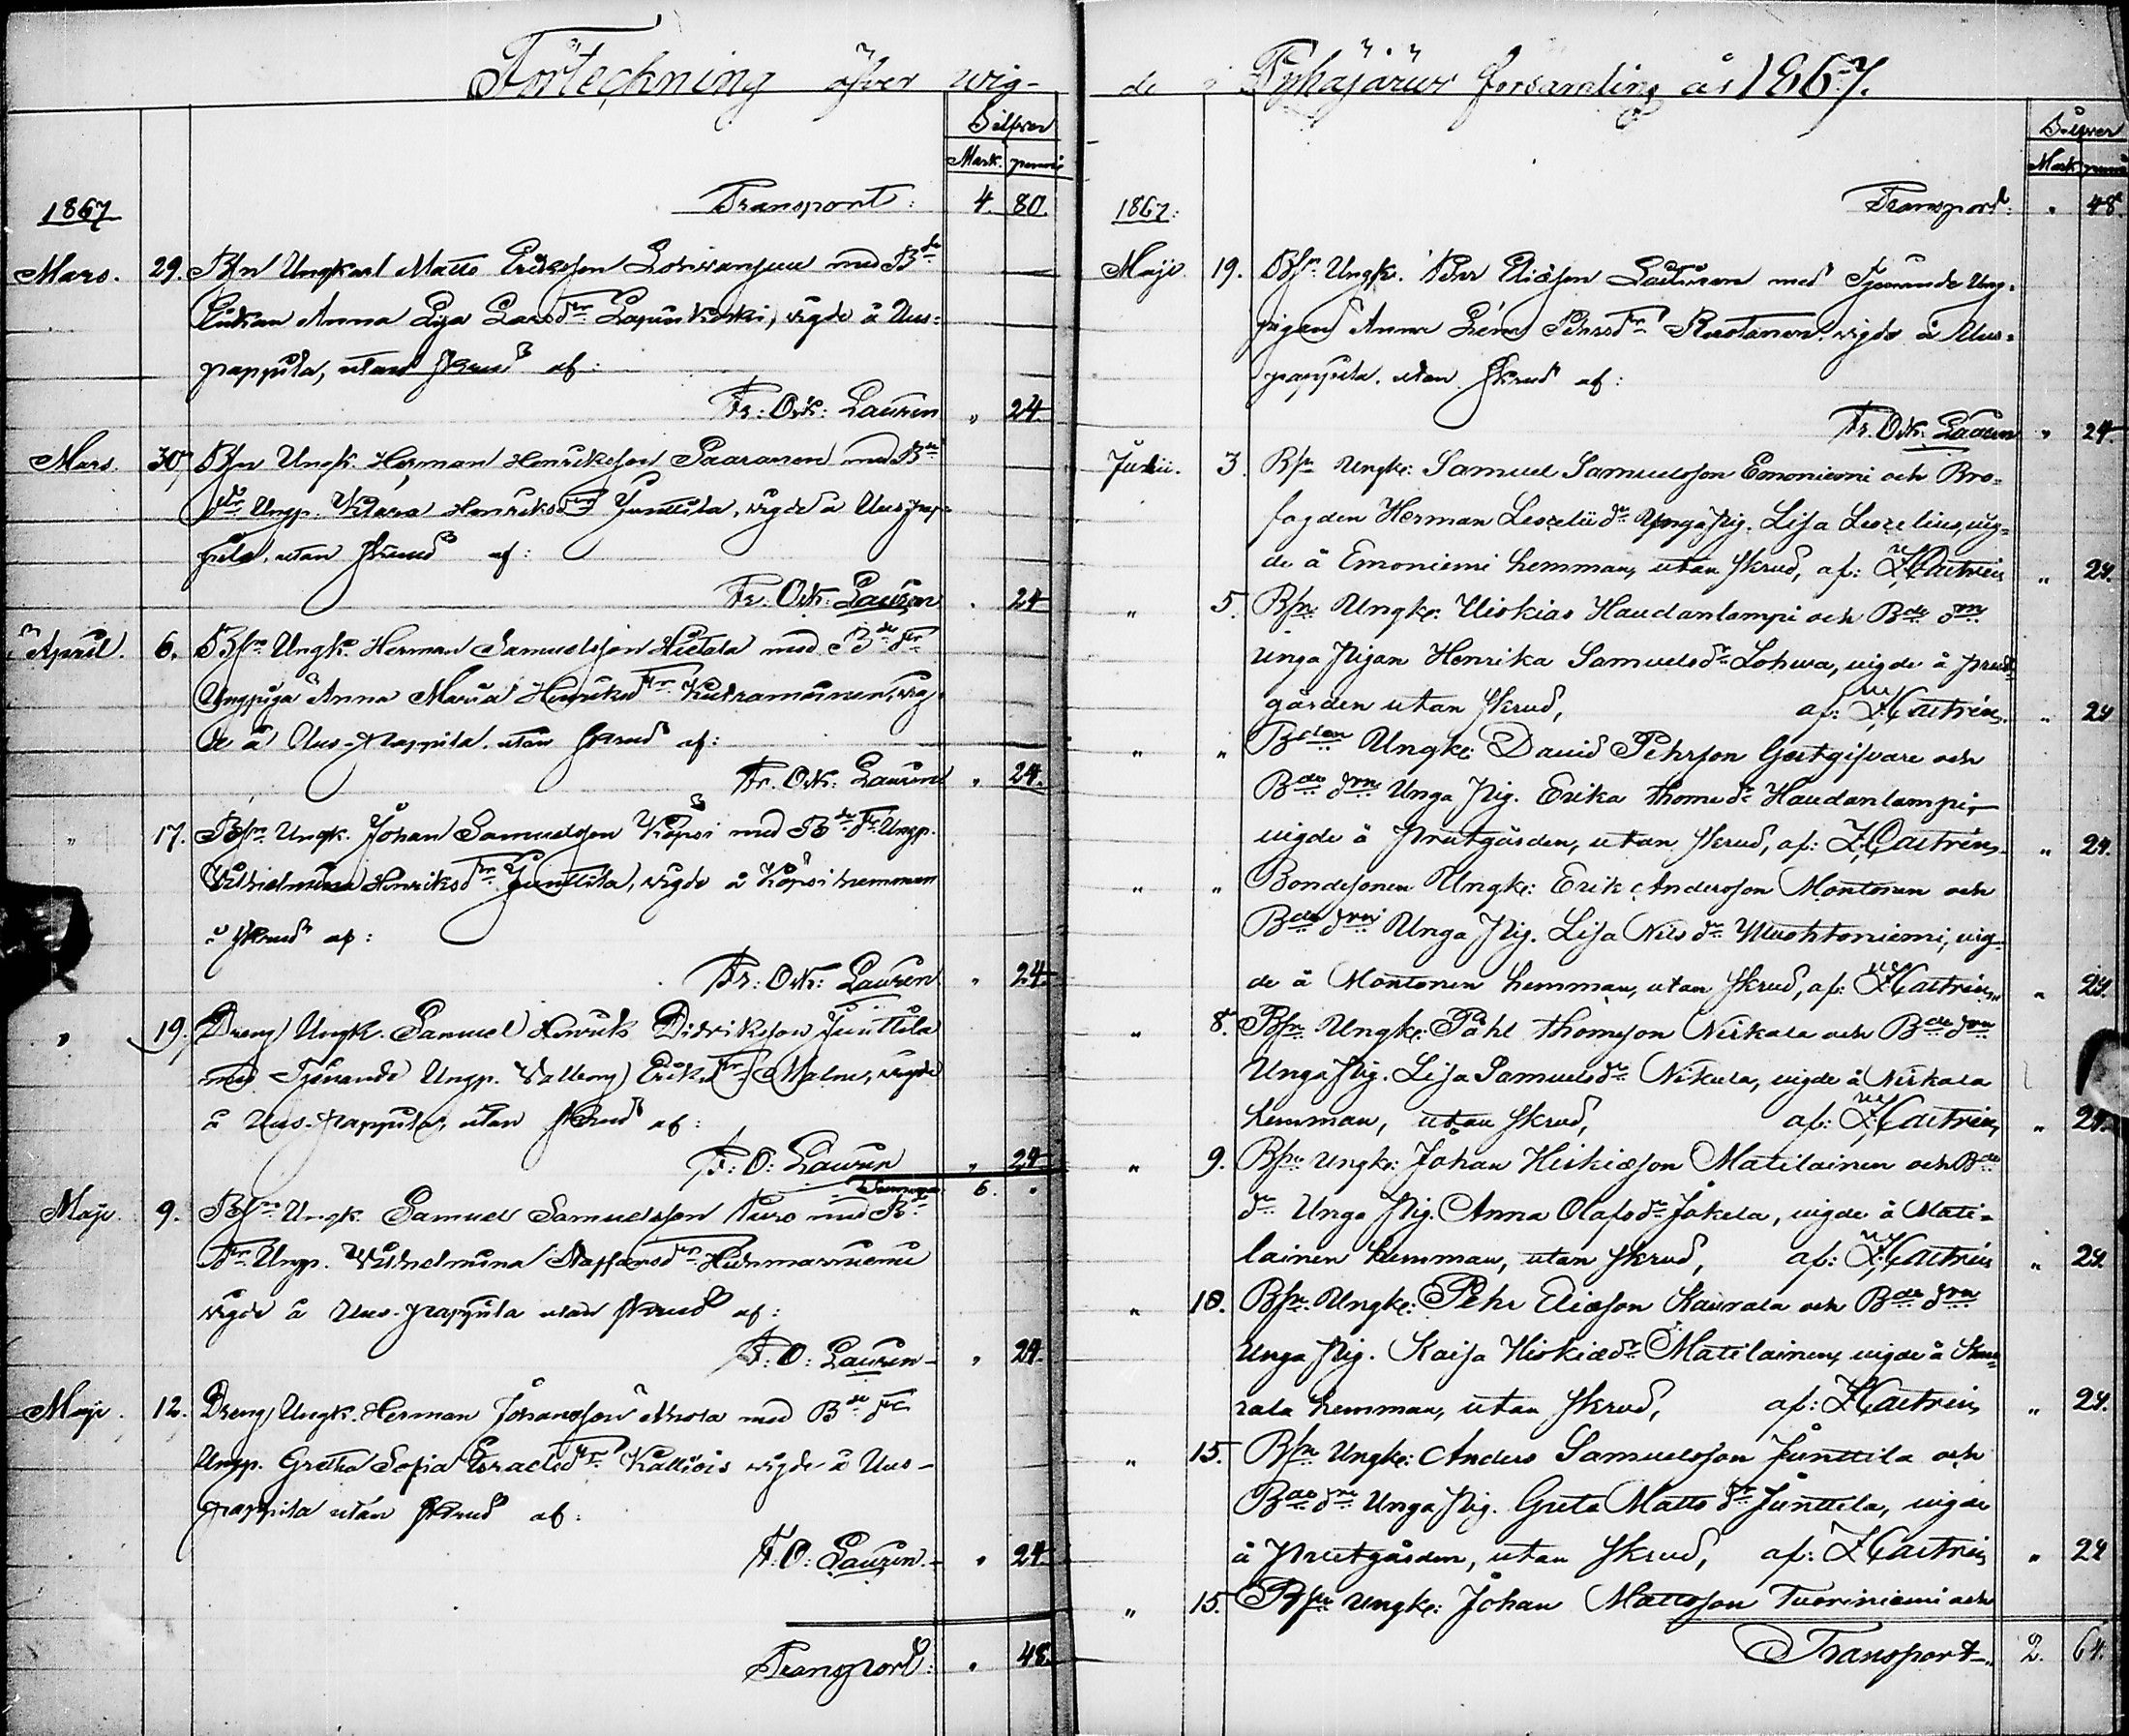 Förteckning öfver wig-
Silfver
Mark. penni
1867 Transport: 4. 80.
Mars. 29. Bsn Ungkarl Matts Eriksson med B:de
Anna Lisa Larsd:r wigde å Uus-
pappila, utan skrud af:
Fr: Osk: Lauren „ 24.
Mars. 30 Bsn Ungk. Herman Henriksson Paaranen med B:de
d:r Ungp. Klara Henriksd:r Junttila, wigde å Uuspap-
pila, utan skrud af:
Fr. Osk: Lauren „ 24
April. 6. Bsn Ungk. Herman Samuelsson Hietala med B:de d:r
Ungpiga Anna Maria Henriksd:r wig-
de å Uus-Pappila utan skrud af:
Fr. Osk: Lauren „ 24.
„ 17. Bsn Ungk. Johan Samuelsson Köpsi med B:de d:r Ungp.
Wilhelmina Henriksd:r Junttila, wigde å Köpsi hemman
u skrud af:
Fr: Osk: Lauren „ 24.
„ 19. Dreng Ungk. Samuel Henrik Didriksson Junttila
med Tjenande Ungp. Walborg Eriksd:r Malm, wigde
å Uus-Pappila, utan skrud af:
F: O: Lauren „ 24
Summa 6. „
Maji. 9. Bsn Ungk. Samuel Samuelsson Puro med B:de
d:r Ungp. Wilhelmina Staffansd:r
wigde å Uus-pappila utan skrud af:
F: O: Lauren „ 24.
Maji. 12. Dreng Ungk. Herman Johansson Ahola med B:de d:r
Ungp. Gretha Sofia Israelsd:r Kalliois wigde å Uus-
pappila utan skrud af:
F: O: Lauren. „ 24.
Transport: „ 48.
de i Pyhäjärwi församling år 1867.
Silfver
Mark penni
1867: Transport: „ 48.
Maji 19. Bsn Ungk. Pehr Eliæson Lautinen med Tjenande Ung-
pigan Anna Lena Pehrsd:r Ruotanen wigde å Uus-
pappila, utan skrud af:
Fr. Osk: Lauren „ 24.
Junii. 3. Bsn Ungk: Samuel Samuelsson Emoniemi och Bro-
fogden Herman Leszelii d:r Unga Pig. Lisa Leszelius, wig-
de å Emoniemi hemman, utan skrud, af: Z: Castrén „ 24.
„ 5. Bsn Ungk: Hiskias Haudanlampi och B:de d:rn
Unga Pigan Henrika Samuelsd:r Lohwa, wigde å prest-
gården utan skrud, af: Z: Castrén „ 24
„ „ Bdson Ungk: David Pehrson Gestgifvare och
B:de d:rn Unga Pig. Erika Thomæd:r Haudanlampi,
wigde å Prestgården, utan skrud, af: Z: Castrén „ 24.
„ „ Bondesonen Ungk: Erik Andersson Montonen och
B:de d:rn Unga Pig. Lisa Nilsd:r Mustoniemi, wig-
de å Montonen hemman, utan skrud, af: Z: Castrén „ 24.
„ 8. Bsn Ungk: Påhl Thomsson Niskala och B:de d:rn
Unga Pig. Lisa Samuelsd:r Nikula, wigde å Niskala
hemman, utan skrud, af: Z: Castrén „ 24.
„ 9. Bsn Ungk: Johan Hiskiæson Matilainen och B:de
d:r Unga Pig. Anna Olofsd:r Jokela, wigde å Mati-
lainen hemman, utan skrud, af: Z: Castrén „ 24.
„ 10. Bsn Ungk: Pehr Eliæson Kaurala och B:de d:rn
Unga Pig. Kaisa Hiskiæd:r Matilainen, wigde å Kau-
rala hemman, utan skrud, af: Z: Castrén „ 24.
„ 15. Bsn Ungk: Anders Samuelsson Junttila och
B:de d:rn Unga Pig. Greta Matts d:r Junttila, wigde
å Prestgården, utan skrud, af: Z: Castrén „ 24
„ 15. Bsn Ungk: Johan Mattsson Tuoriniemi och
Transport „ 2. 64.